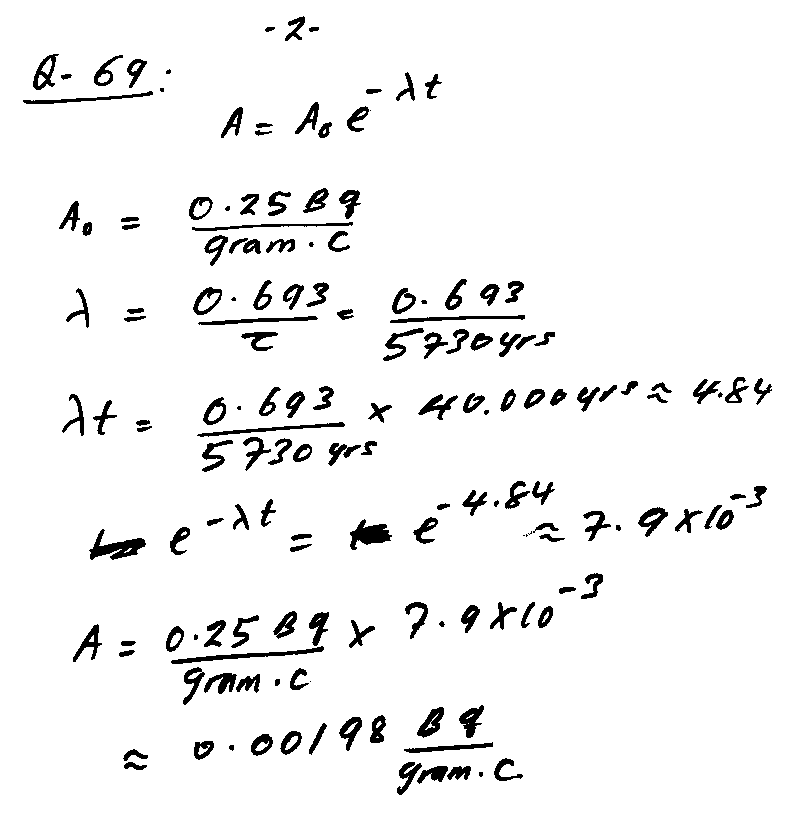 -2-
Q- 69:
A = A₀ e^{-λt}
A₀ = 0.25 Bq / gram.C
λ = 0.693 / τ = 0.693 / 5730 yrs
λt = 0.693 / 5730 yrs × 40.000 yrs ≈ 4.84
e^{-λt} = e^{-4.84} ≈ 7.9 × 10^{-3}
A = 0.25 Bq / gram.C × 7.9 × 10^{-3}
≈ 0.00198 Bq / gram.C.